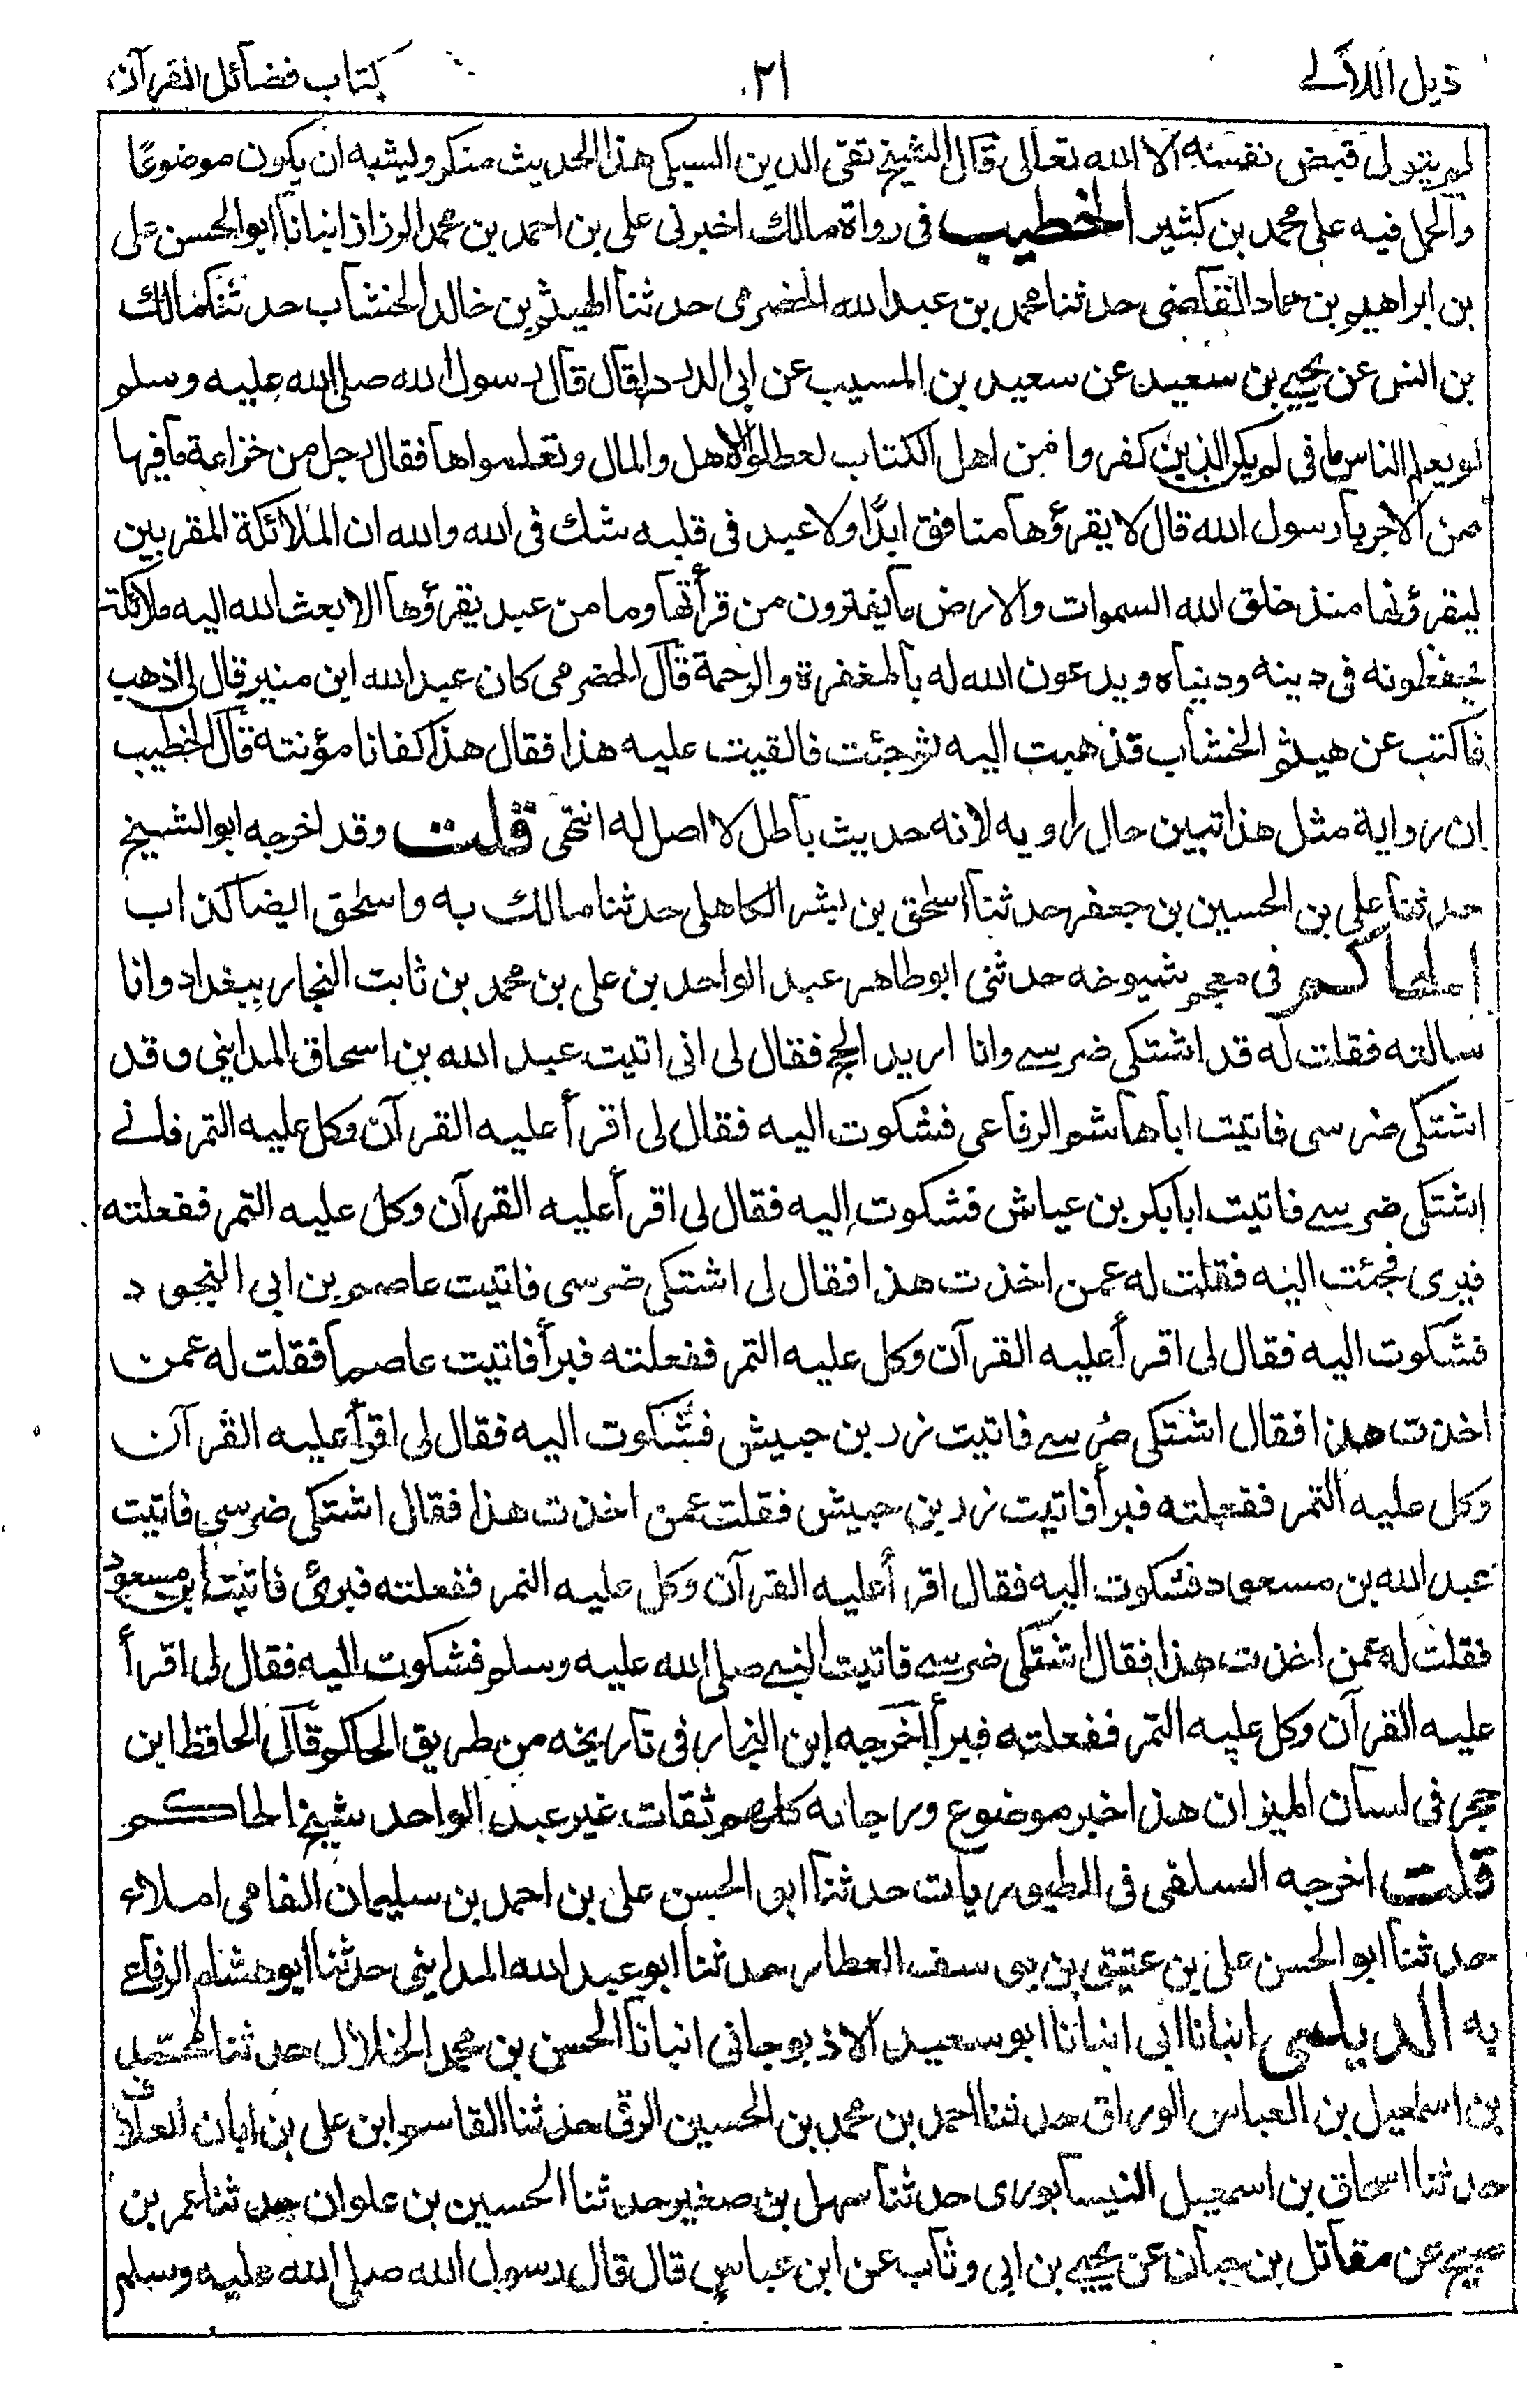 ذيل اللآلى
٢١
كتاب فضائل القرآن
لم يتول قبض نفسه الا الله تعالى قال الشيخ تقى الدين السبكى هذا الحديث منكر وليشبه ان يكون موضوعًا
والحمل فيه على محمد بن كثير الخطيب فى رواة مالك اخبرنى على بن احمد بن محمد الرزاز انبانا ابو الحسن على
بن ابراهيم بن حماد القاضى حدثنا محمد بن عبد الله الحضرمى حدثنا الهيثم بن خالد الخشاب حدثنا مالك
بن انس عن يحيى بن سعيد عن سعيد بن المسيب عن ابى الدرداء قال قال رسول الله صلى الله عليه وسلم
لو يعلم الناس ما فى لم يكن الذين كفروا من اهل الكتاب لعطلوا الاهل والمال وتعلمواها فقال رجل من خزاعة ما فيها
من الاجر يا رسول الله قال لا يقرؤها منافق ابدًا ولا عبد فى قلبه شك فى الله والله ان الملائكة المقربين
ليقرؤنها منذ خلق الله السموات والارض ما يفترون من قرأتها وما من عبد يقرؤها الا بعث الله اليه ملائكة
يحفظونه فى دينه ودنياه ويدعون الله له بالمغفرة والرحمة قال الحضرمى كان عبد الله ابن منير قال لى اذهب
فاكتب عن هيثم الخشاب فذهبت اليه ثم جئت فالقيت عليه هذا فقال هذا كفانا مؤنته قال الخطيب
ان رواية مثل هذا تبين حال راويه لانه حديث باطل لا اصل له انتهى قلت وقد اخرجه ابو الشيخ
حدثنا على بن الحسين بن جعفر حدثنا اسحق بن بشر الكاهلى حدثنا مالك به واسحق ايضا كذاب
الحاكم فى معجم شيوخه حدثنى ابو طاهر عبد الواحد بن على بن محمد بن ثابت النجار ببغداد وانا
سالته فقلت له قد اشتكى ضرسى وانا اريد الحج فقال لى انى اتيت عبد الله بن اسحاق المداينى وقد
اشتكى ضرسى فاتيت ابا هاشم الرفاعى فشكوت اليه فقال لى اقرأ عليه القرآن وكل عليه التمر فانى
اشتكى ضرسى فاتيت ابا بكر بن عياش فشكوت اليه فقال لى اقرأ عليه القرآن وكل عليه التمر ففعلته
فبرى فجئت اليه فقلت له عمن اخذت هذا فقال لى اشتكى ضرسى فاتيت عاصم بن ابى النجود
فشكوت اليه فقال لى اقرأ عليه القرآن وكل عليه التمر ففعلته فبرأ فاتيت عاصما فقلت له عمن
اخذت هذا فقال اشتكى ضرسى فاتيت زر بن حبيش فشكوت اليه فقال لى اقرأ عليه القرآن
وكل عليه التمر ففعلته فبرأ فاتيت زر بن حبيش فقلت عمن اخذت هذا فقال اشتكى ضرسى فاتيت
عبد الله بن مسعود فشكوت اليه فقال اقرأ عليه القرآن وكل عليه التمر ففعلته فبرئ فاتيت ابن مسعود
فقلت له عمن اخذت هذا فقال اشتكى ضرسى فاتيت النبى صلى الله عليه وسلم فشكوت اليه فقال لى اقرأ
عليه القرآن وكل عليه التمر ففعلته فبرأ اخرجه ابن النجار فى تاريخه من طريق الحاكم قال الحافظ ابن
حجر فى لسان الميزان هذا خبر موضوع ورجاله كلهم ثقات غير عبد الواحد شيخ الحاكم
قلت اخرجه السلفى فى الطيوريات حدثنا ابو الحسن على بن احمد بن سليمان الفامى املاء
حدثنا ابو الحسن على بن عتيق بن يوسف العطار حدثنا ابو عبد الله المداينى حدثنا ابو هشام الرفاعى
به الديلمى انبانا ابى انبانا ابو سعيد الاذبوجانى انبانا الحسن بن محمد الخلال حدثنا محمد
بن اسمعيل بن العباس الوراق حدثنا احمد بن محمد بن الحسين الرقى حدثنا القاسم ابن على بن ابان العلاف
حدثنا اسحاق بن اسمعيل النيسابورى حدثنا سهل بن صغير حدثنا الحسين بن علوان حدثنا عمر بن
صبيح عن مقاتل بن حبان عن يحيى بن ابى وثاب عن ابن عباس قال قال رسول الله صلى الله عليه وسلم